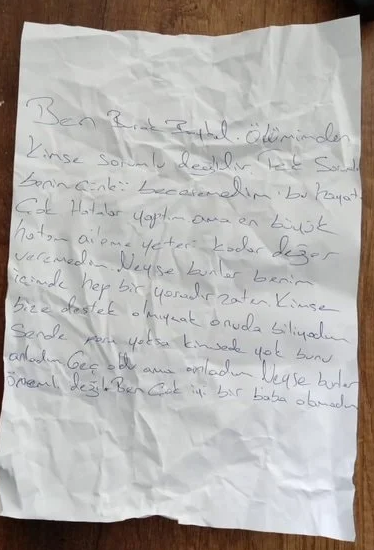 Ben Burak Baytal. Ölümümden
Kimse sorumlu değildir. Tek Sorumlu
benim çünkü beceremedim bu hayatı
Çok Hatalar yaptım ama en büyük
hatam aileme yeteri kadar değer
veremedim. Neyse bunlar benim
içimde hep bir yaradır zaten. Kimse
bize destek olmıycak onuda biliyodum
Sende para yoksa kimsede yok bunu
anladım Geç oldu ama anladım Neyse bunlar
önemli değil. Ben Çok iyi bir baba olamadım